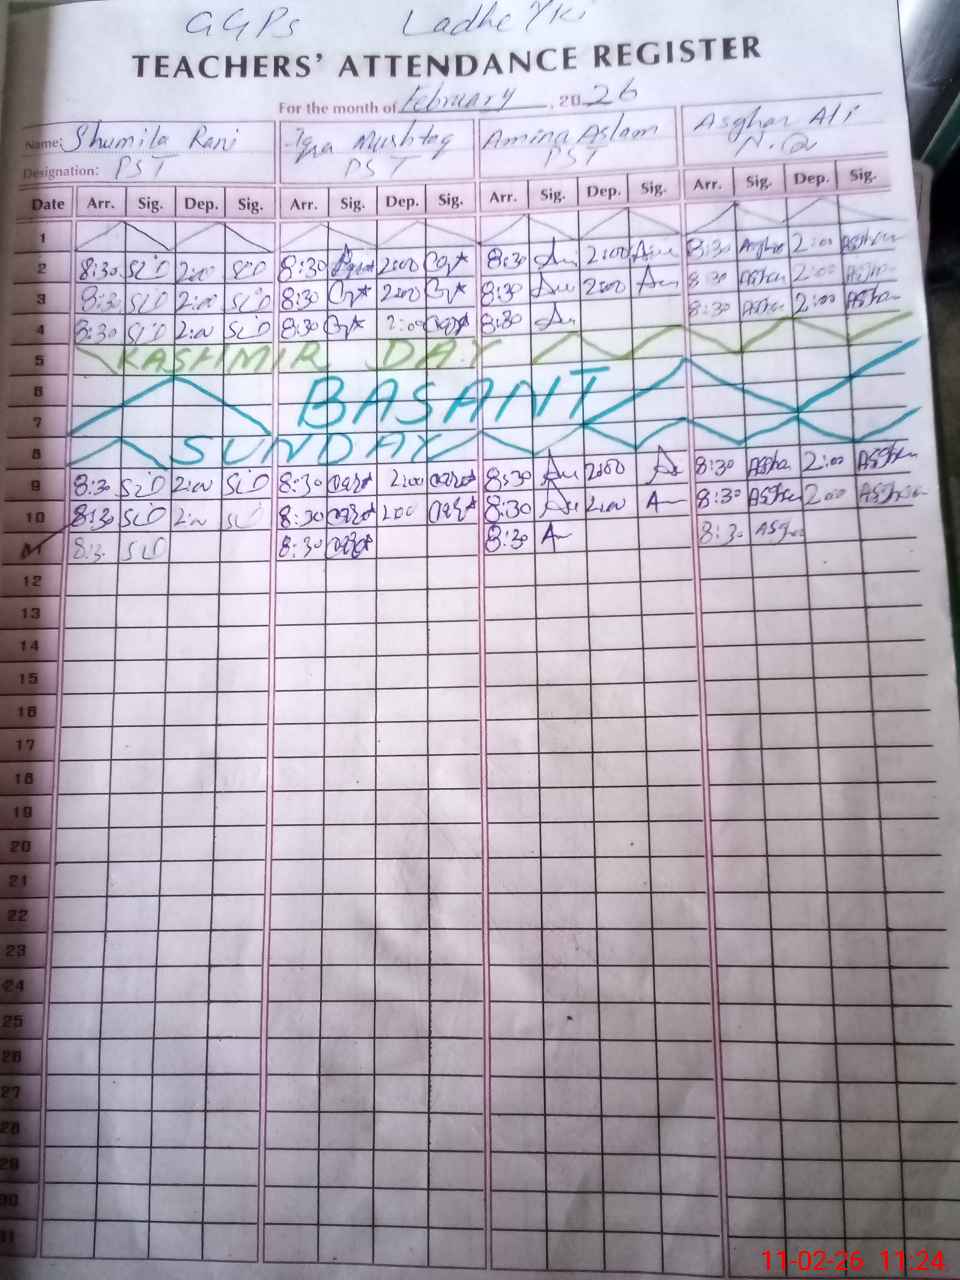 GGPS Ladhe Yki
TEACHERS' ATTENDANCE REGISTER
For the month of February, 2026
Name: Shumila Rani Iqra Mushtaq Amina Aslam Asghar Ali
Designation: PST PST PST N.Q
Date Arr. Sig. Dep. Sig. Arr. Sig. Dep. Sig. Arr. Sig. Dep. Sig. Arr. Sig. Dep. Sig.
1
2 8:30 2:00 8:30 2:00 8:30 2:00 8:30 Asghar 2:00 Asghar
3 8:30 2:00 8:30 2:00 8:30 2:00 8:30 Asghar 2:00 Asghar
4 8:30 2:00 8:30 2:00 8:30 8:30 Asghar 2:00 Asghar
5 KASHMIR DAY
6 BASANT
7
8 SUNDAY
9 8:30 2:00 8:30 2:00 8:30 2:00 8:30 Asgha 2:00 Asghar
10 8:30 2:00 8:30 2:00 8:30 2:00 8:30 Asghar 2:00 Asghar
11 8:30 8:30 8:30 8:30 Asghar
12
13
14
15
16
17
18
19
20
21
22
23
24
25
26
27
28
29
30
31
11-02-26 11:24